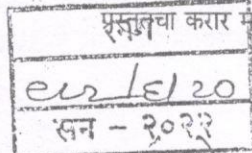 प्रस्तुतचा करार
/६/२०
सन - २०२२